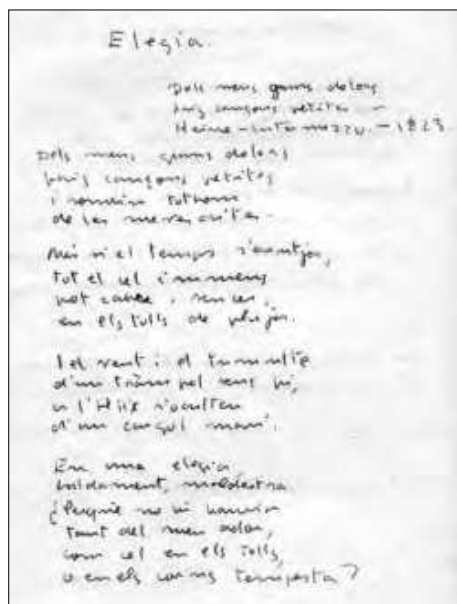 Elegia.
Dels meus grans dolors
faig cançons petites –
Heine – intermezzo. – 1823.
Dels meus grans dolors
faig cançons petites
i somriu tothom
de les meves cuites.
Més si el temps s'
tot el cel immens
pot cabre, sencer,
en els tolls de pluja.
I el vent i el tumulte
d'un tràngol sens fi,
a l'hèlix s'oculten
d'un cargol marí.
En una elegia,
¿Perquè no hi hauria
tant del meu dolor,
com cel en els tolls,
o en els corns tempesta?